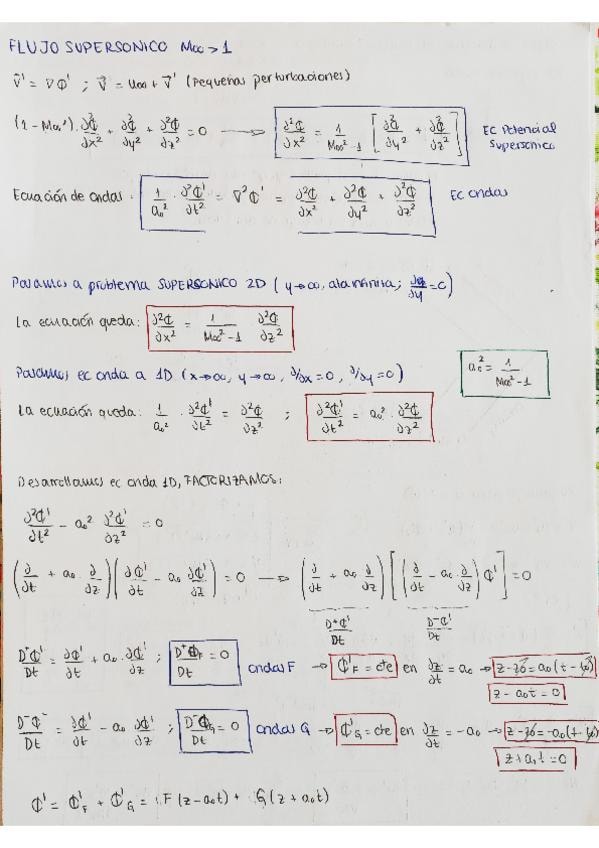 FLUJO SUPERSONICO M∞ > 1
v⃗' = ∇Φ' ; v⃗ = u∞ + v⃗' (Pequeñas perturbaciones)
(1 - M∞²) · ∂²Φ/∂x² + ∂²Φ/∂y² + ∂²Φ/∂z² = 0 → ∂²Φ/∂x² = 1/(M∞² - 1) [∂²Φ/∂y² + ∂²Φ/∂z²] EC Potencial Supersonico
Ecuación de ondas · 1/a₀² · ∂²Φ'/∂t² = ∇²Φ' = ∂²Φ/∂x² + ∂²Φ/∂y² + ∂²Φ/∂z² EC ondas
Pasamos a problema SUPERSONICO 2D ( y→∞, ala infinita; ∂Φ/∂y = 0)
La ecuación queda: ∂²Φ/∂x² = 1/(M∞² - 1) ∂²Φ/∂z²
a₀² = 1/(M∞² - 1)
Pasamos ec onda a 1D (x→∞, y→∞, ∂/∂x = 0, ∂/∂y = 0)
La ecuación queda: 1/a₀² · ∂²Φ'/∂t² = ∂²Φ/∂z² ; ∂²Φ'/∂t² = a₀² · ∂²Φ/∂z²
Desarrollamos ec onda 1D, FACTORIZAMOS:
∂²Φ'/∂t² - a₀² ∂²Φ'/∂z² = 0
(∂/∂t + a₀ · ∂/∂z)(∂Φ'/∂t - a₀ ∂Φ'/∂z) = 0 → (∂/∂t + a₀ ∂/∂z)[(∂/∂t - a₀ ∂/∂z)Φ'] = 0
D⁺Φ'/Dt D⁻Φ'/Dt
D⁺Φ'/Dt = ∂Φ'/∂t + a₀ · ∂Φ'/∂z ; D⁺Φ'F/Dt = 0 ondas F → Φ'F = cte en ∂z/∂t = a₀ → z - z₀ = a₀(t - t₀)
z - a₀t = 0
D⁻Φ'/Dt = ∂Φ'/∂t - a₀ ∂Φ'/∂z ; D⁻ΦG/Dt = 0 ondas G → Φ'G = cte en ∂z/∂t = -a₀ → z - z₀ = -a₀(t - t₀)
z + a₀t = 0
Φ' = Φ'F + Φ'G = F(z - a₀t) + G(z + a₀t)